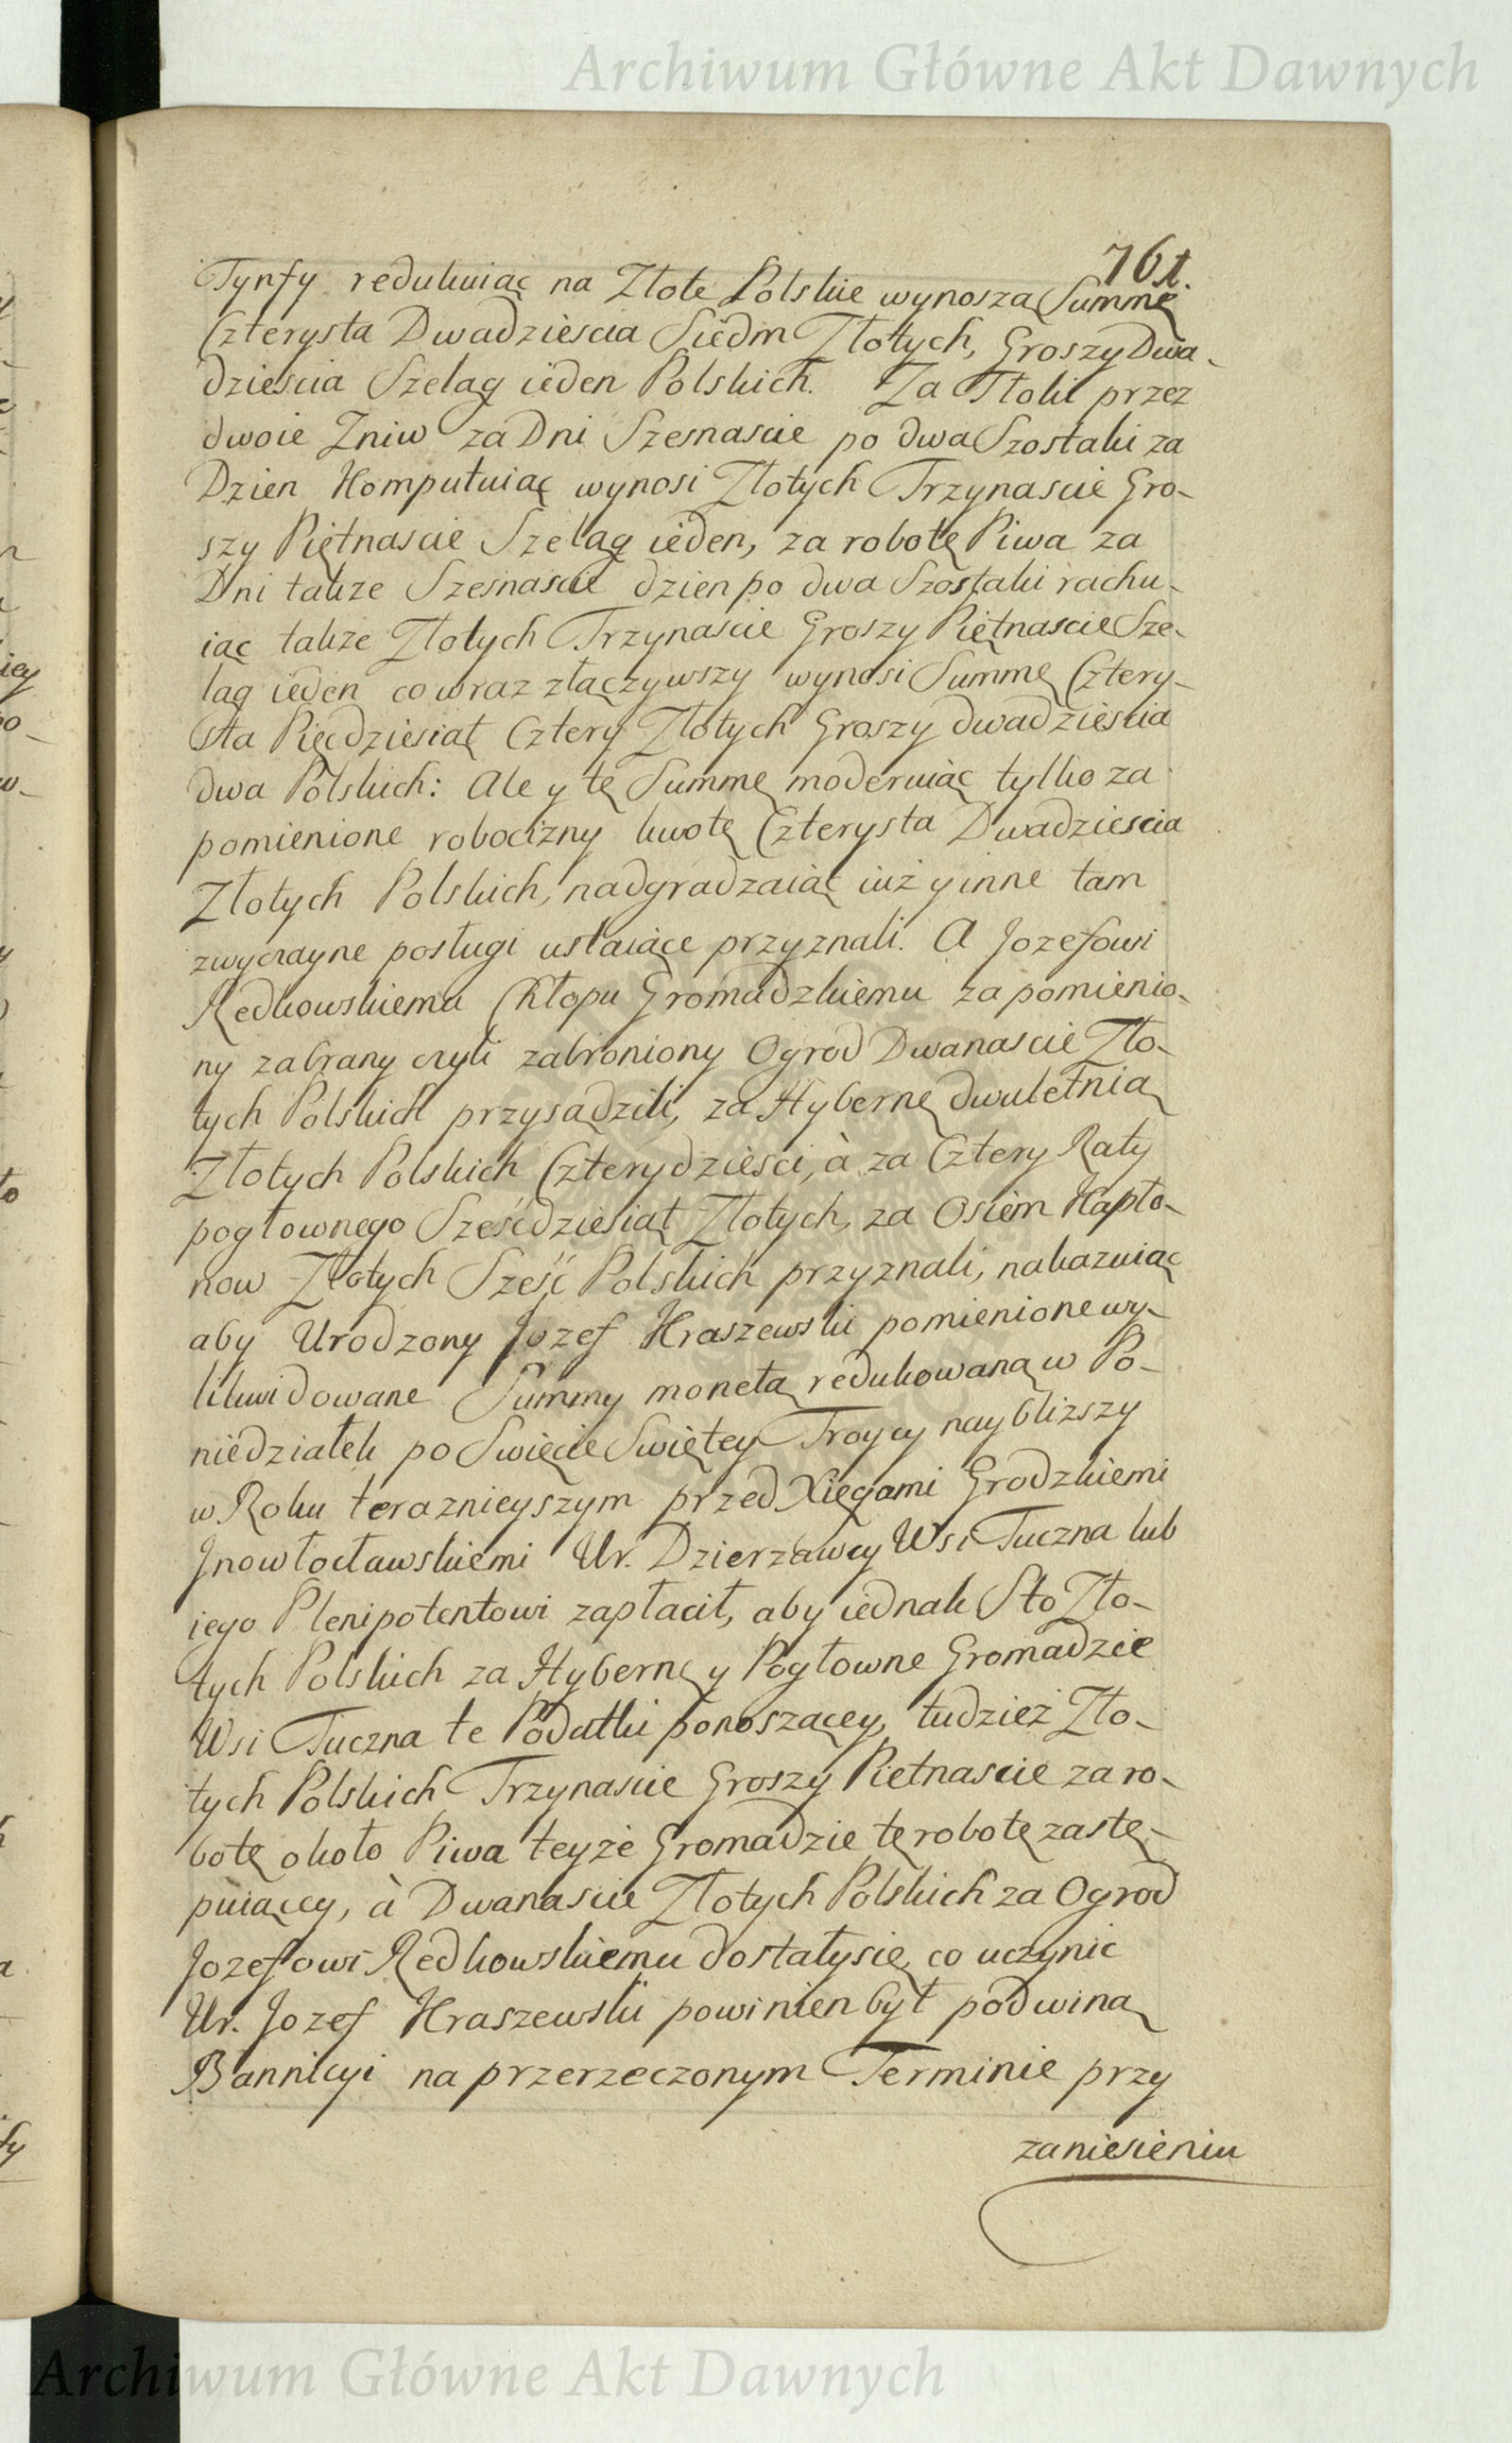 Archiwum Główne Akt Dawnych
761.
Tynfy redukuiąc na Złote Polskie wynoszą Summę
Czterysta Dwadzieścia Siedm Złotych, Groszy Dwa-
dziescia Szeląg ieden Polskich. Za Tłoki przez
dwoie Zniw za Dni Szesnascie po dwa Szostaki za
Dzien Komputuiąc wynosi Złotych Trzynascie Gro-
szy Piętnascie Szeląg ieden, za robotę Piwa za
Dni takze Szesnascie dzien po dwa Szostaki rachu-
iąc takze Złotych Trzynascie Groszy Piętnascie Sze-
ląg ieden co wraz złączywszy wynosi Summę Cztery-
sta Pięcdziesiąt Cztery Złotych Groszy dwadziescia
dwa Polskich: Ale y tę Summę moderuiąc tylko za
pomienione robocizny kwotę Czterysta Dwadziescia
Złotych Polskich, nadgradzaiąc iuż y inne tam
zwyczayne posługi ustaiące przyznali. A Jozefowi
Redkowskiemu Chłopu Gromadzkiemu za pomienio-
ny zabrany czyli zabroniony Ogrod Dwanascie Zło-
tych Polskich przysądzili, za Hybernę dwuletnią
Złotych Polskich Czterydzieści, à za Cztery Raty
pogłownego Sześcdziesiąt Złotych, za Osiem Kapło-
now Złotych Sześć Polskich przyznali, nakazuiąc
aby Urodzony Jozef Kraszewski pomienione wy-
likwidowane Summy monetą redukowaną w Po-
niedziałek po Swięcie Swiętey Troycy naybliższy
w Roku teraznieyszym przed Xięgami Grodzkiemi
Jnowłocławskiemi Ur. Dzierzawcy Wsi Tuczna lub
iego Plenipotentowi zapłacił, aby iednak Sto Zło-
tych Polskich za Hybernę y Pogłowne Gromadzie
Wsi Tuczna te Podatki ponoszącey, tudzież Zło-
tych Polskich Trzynascie Groszy Pietnascie za ro-
botę około Piwa teyże Gromadzie tę robotę zastę-
puiącey, à Dwanascie Złotych Polskich za Ogrod
Jozefowi Redkowskiemu dostały się, co uczynic
Ur. Jozef Kraszewski powinien był pod winą
Bannicyi na przerzeczonym Terminie przy
zaniesieniu
Archiwum Główne Akt Dawnych